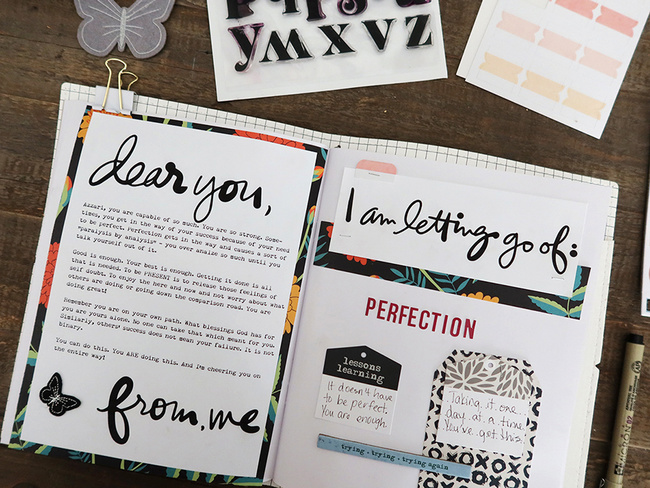 dear you,
Azzari, you are capable of so much. You are so strong. Some-
times, you get in the way of your success because of your need
to be perfect. Perfection gets in the way and causes a sort of
"paralysis by analysis" - you over analize so much until you
talk yourself out of it.
Good is enough. Your best is enough. Getting it done is all
that is needed. To be PRESENT is to release those feelings of
self doubt. To enjoy the here and now and not worry about what
others are doing or going down the comparison road. You are
doing great!
Remember you are on your own path. What blessings God has for
you are yours alone. No one can take that which meant for you.
Similarly, others' success does not mean your failure. It is not
binary.
You can do this. You ARE doing this. And I'm cheering you on
the entire way!
from, me
I am letting go of:
PERFECTION
lessons
learning
It doesn't have
to be perfect.
You are enough.
Taking it one
day at a time.
You've got this!
trying . trying . trying again